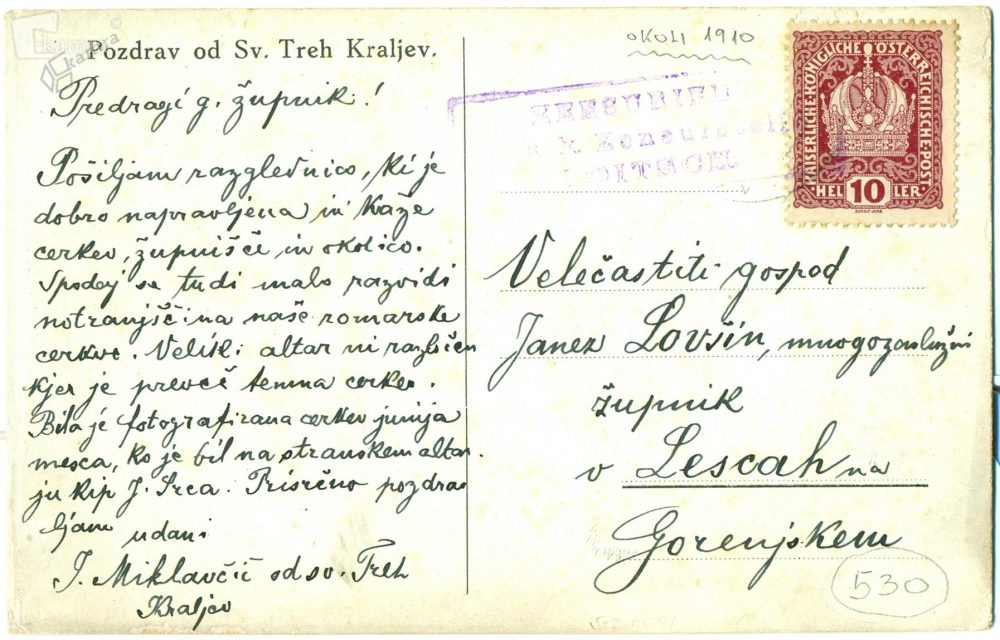 kamra
Pozdrav od Sv. Treh Kraljev.
OKOLI 1910
Predragi g. župnik!
Pošiljam razglednico, ki je
dobro napravljena in kaže
cerkev, župnišče in okolico.
Spodaj se tudi malo razvidi
notranjščina naše romarske
cerkve. Veliki altar ni razločen
kjer je preveč temna cerkev.
Bila je fotografirana cerkev junija
mesca, ko je bil na stranskem altar-
ju kip J. Srca. Prisrčno pozdrav-
ljam udani
J. Miklavčič od sv. Treh
Kraljev
ZENSURIERT
k. k. Zensurstelle
KAISERLICHE KÖNIGLICHE ÖSTERREICHISCHE POST
HEL 10 LER
Velečastiti gospod
Janez Lovšin, mnogozaslužni
župnik
v Lescah na
Gorenjskem
530